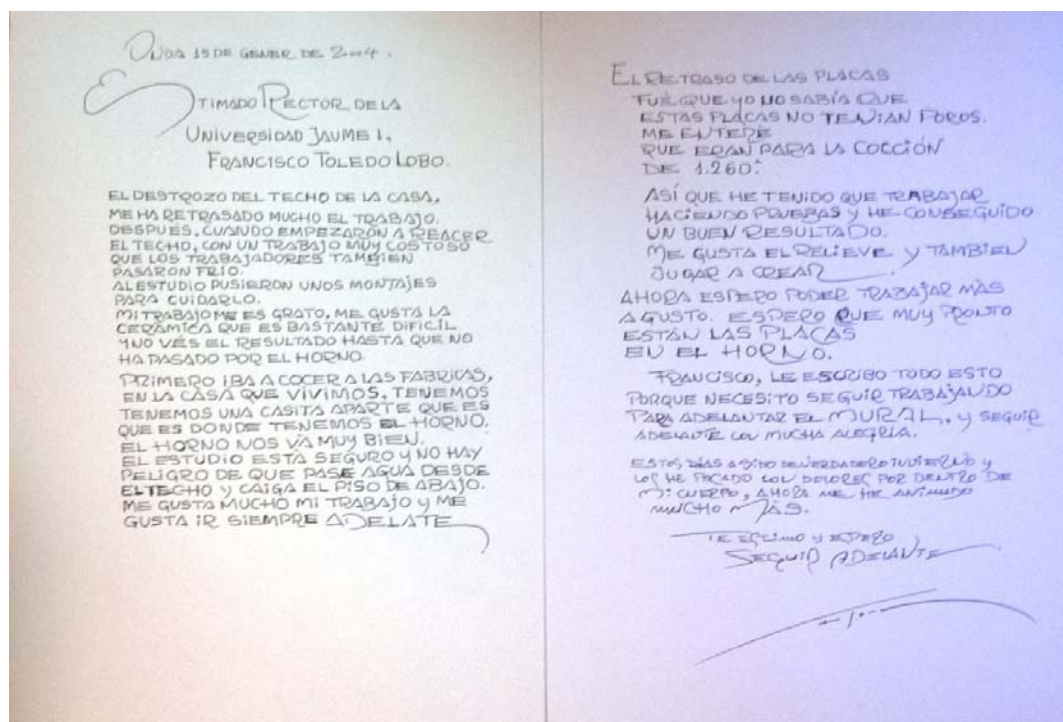 ONDA 15 DE GENER DE 2004.
ESTIMADO RECTOR DE LA
UNIVERSIDAD JAUME I.
FRANCISCO TOLEDO LOBO.
EL DESTROZO DEL TECHO DE LA CASA,
ME HA RETRASADO MUCHO EL TRABAJO.
DESPUÉS, CUANDO EMPEZARON A REACER
EL TECHO, CON UN TRABAJO MUY COSTOSO
QUE LOS TRABAJADORES TAMBIEN
PASARON FRIO.
AL ESTUDIO PUSIERON UNOS MONTAJES
PARA CUIDARLO.
MI TRABAJO ME ES GRATO, ME GUSTA LA
CERÁMICA QUE ES BASTANTE DIFICIL
Y NO VES EL RESULTADO HASTA QUE NO
HA PASADO POR EL HORNO.
PRIMERO IBA A COCER A LAS FABRICAS,
EN LA CASA QUE VIVIMOS, TENEMOS
TENEMOS UNA CASITA APARTE QUE ES
QUE ES DONDE TENEMOS EL HORNO.
EL HORNO NOS VA MUY BIEN.
EL ESTUDIO ESTÁ SEGURO Y NO HAY
PELIGRO DE QUE PASE AGUA DESDE
EL TECHO Y CAIGA EL PISO DE ABAJO.
ME GUSTA MUCHO MI TRABAJO Y ME
GUSTA IR SIEMPRE ADELATE
EL RETRASO DE LAS PLACAS
FUÉ QUE YO NO SABÍA QUE
ESTAS PLACAS NO TENIAN POROS.
ME ENTERÉ
QUE ERAN PARA LA COCCIÓN
DE 1.260º
ASÍ QUE HE TENIDO QUE TRABAJAR
HACIENDO PRUEBAS Y HE CONSEGUIDO
UN BUEN RESULTADO.
ME GUSTA EL RELIEVE Y TAMBIEN
JUGAR A CREAR.
AHORA ESPERO PODER TRABAJAR MÁS
A GUSTO. ESPERO QUE MUY PRONTO
ESTÁN LAS PLACAS
EN EL HORNO.
FRANCISCO, LE ESCRIBO TODO ESTO
PORQUE NECESITO SEGUIR TRABAJANDO
PARA ADELANTAR EL MURAL, Y SEGUIR
ADELANTE CON MUCHA ALEGRIA.
ESTOS DIAS A SIDO DE VERDADERO INVIERNO Y
LOS HE PASADO CON DOLORES POR DENTRO DE
MI CUERPO, AHORA ME HE ANIMADO
MUCHO MÁS.
TE ESTIMO Y ESPERO
SEGUIR ADELANTE